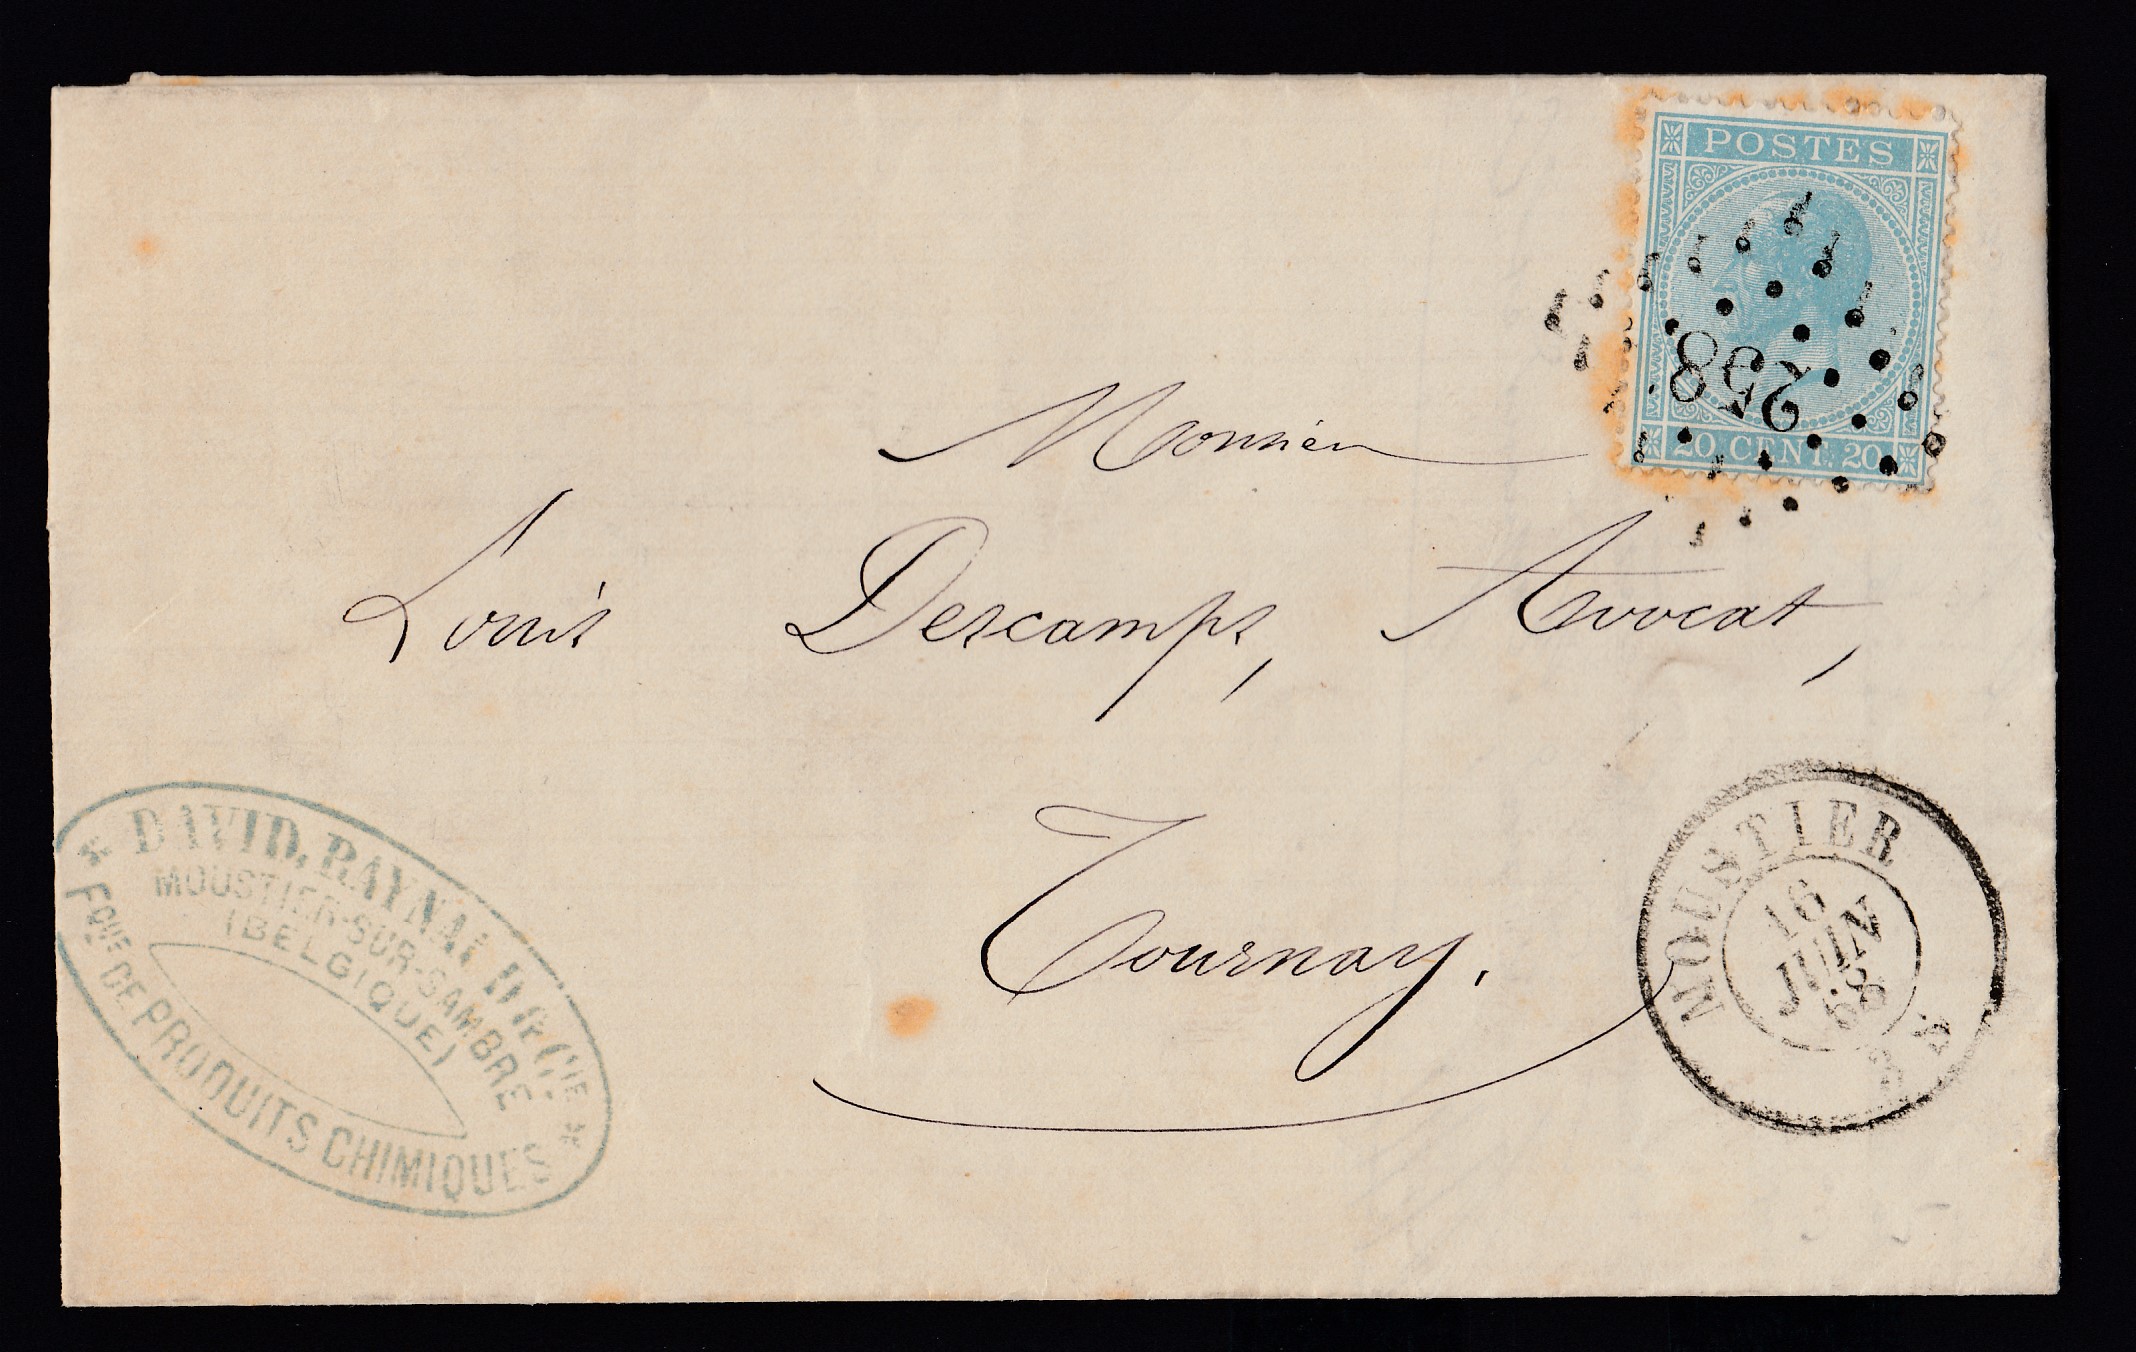 POSTES
258
20 CENT. 20
Monsieur
Louis Descamps, Avocat,
Tournay.
DAVID, RAYNAL, D & CIE
MOUSTIER-SUR-SAMBRE
(BELGIQUE)
FQUE DE PRODUITS CHIMIQUES
MOUSTIER
16
JUIN
68